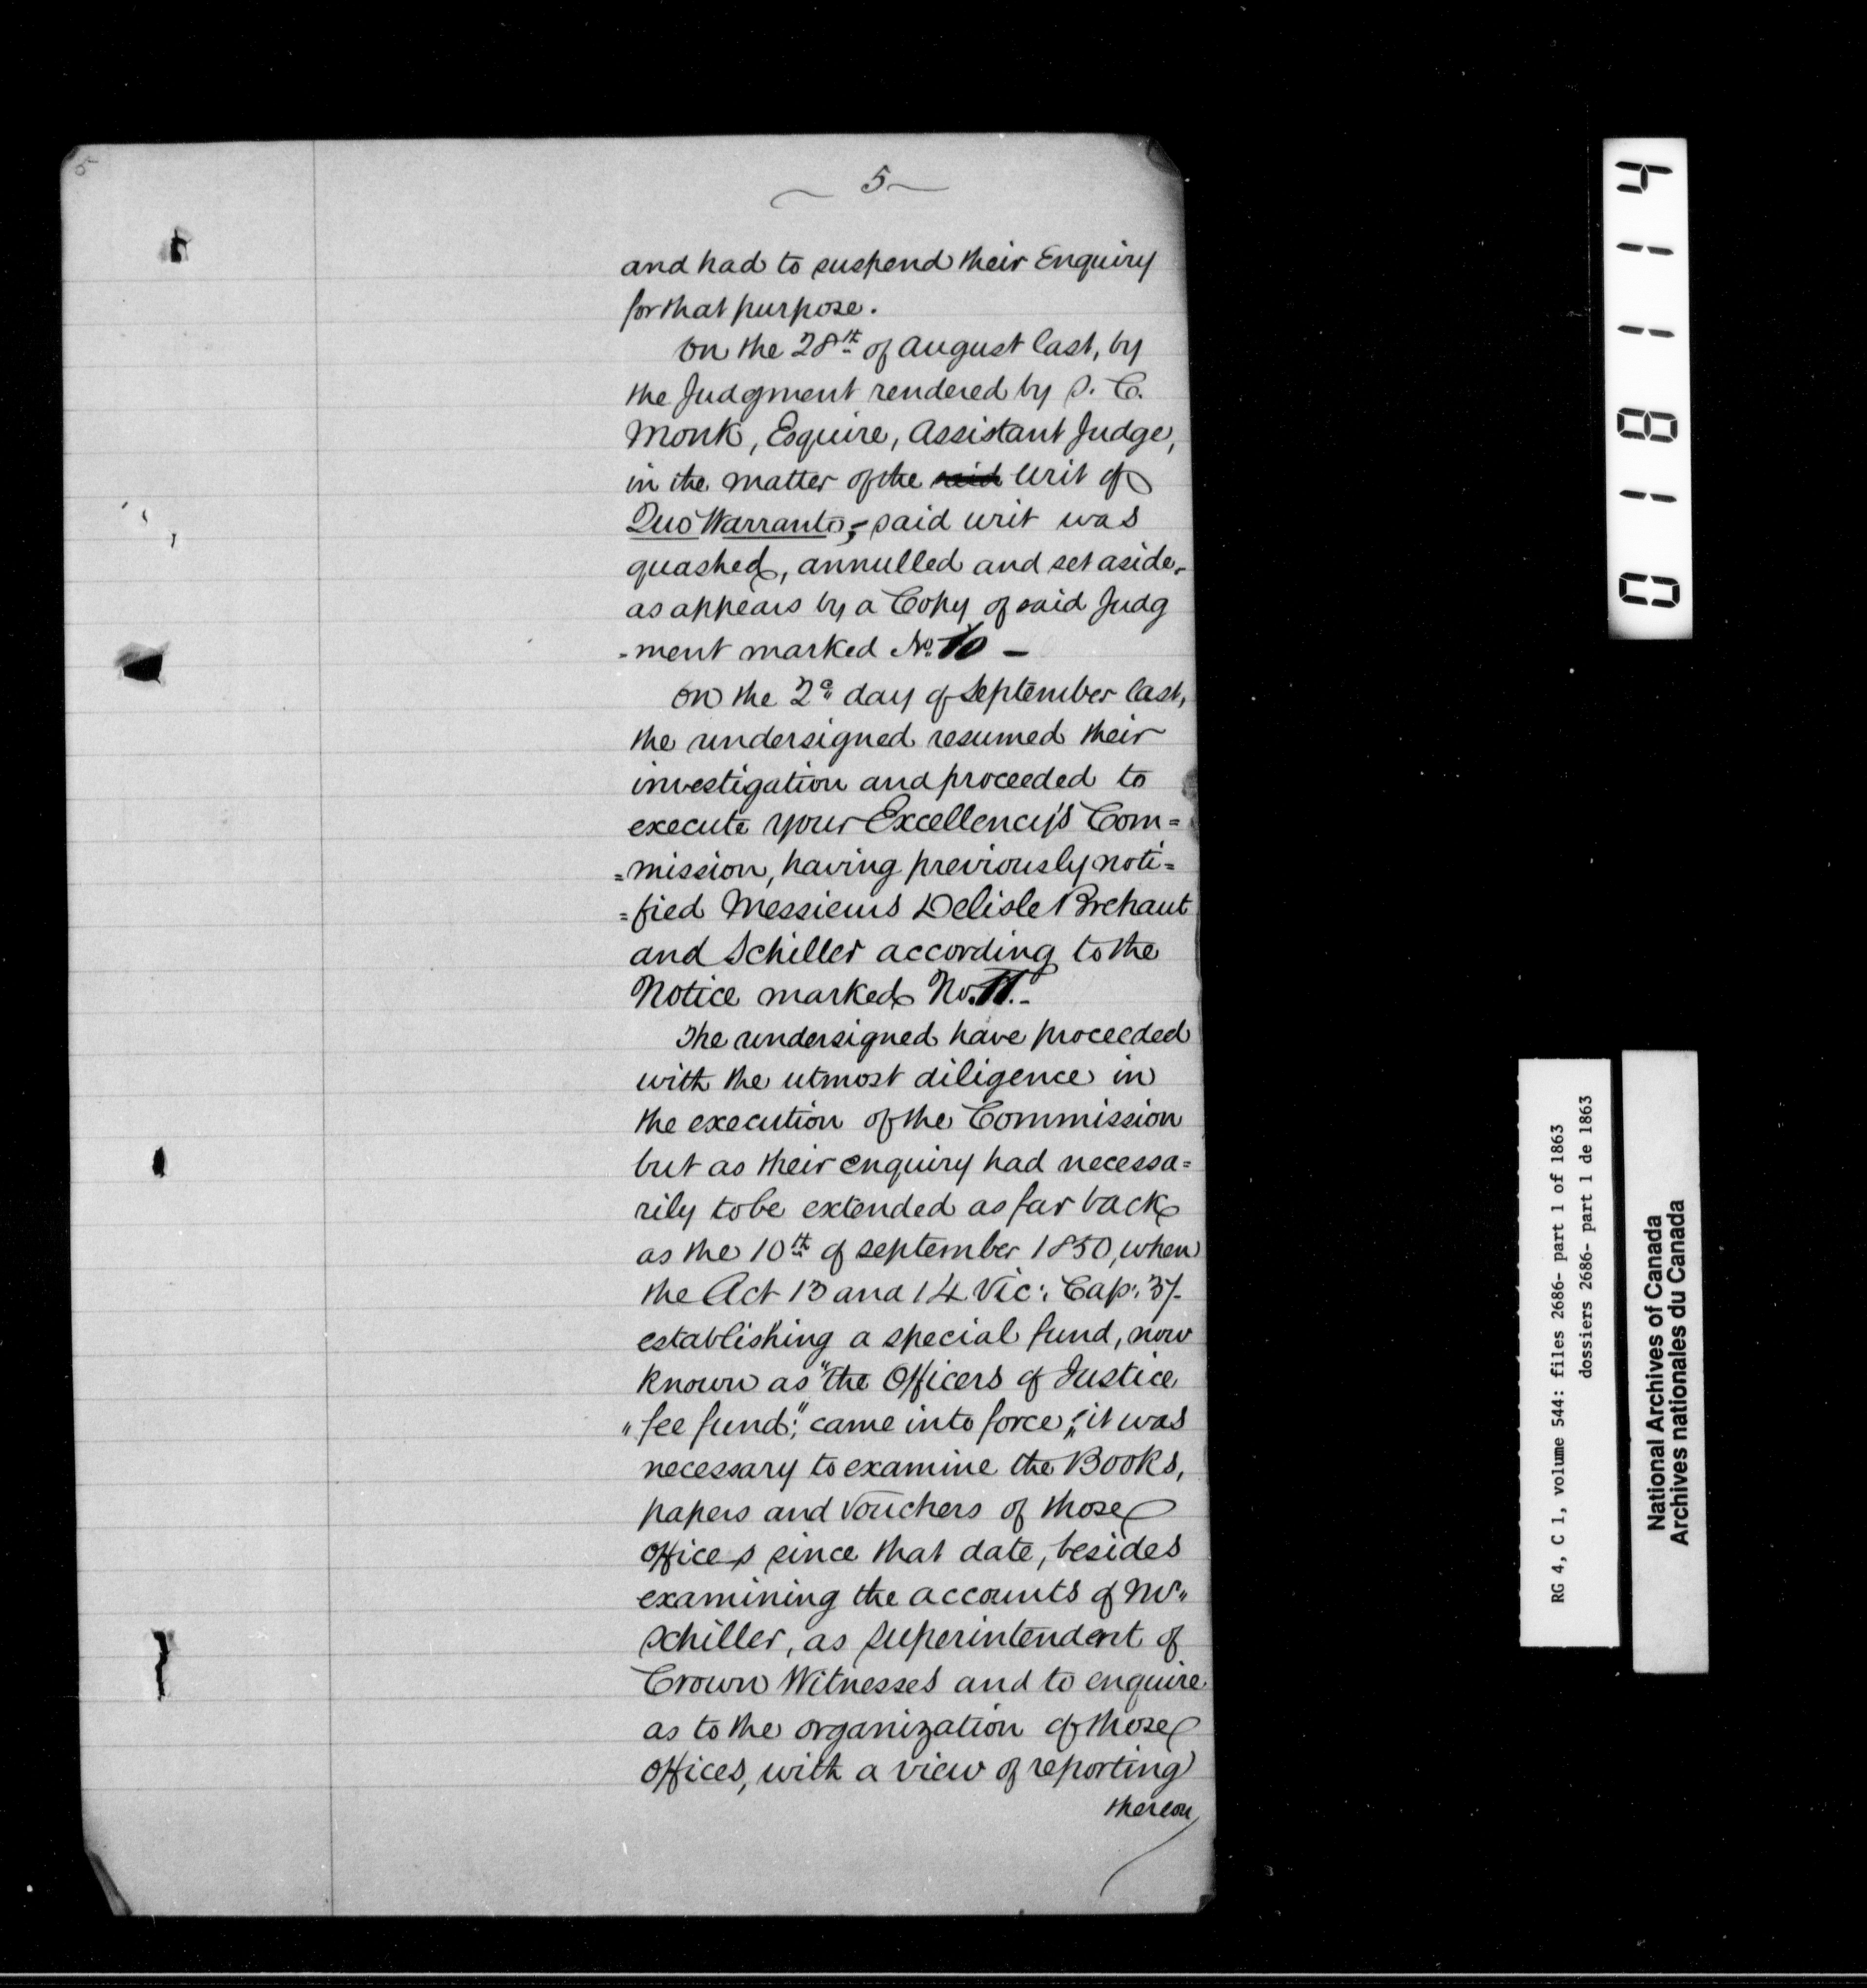 5
~ 5 ~
and had to suspend their Enquiry
for that purpose.
On the 28th of August last, by
the Judgment rendered by S. C.
Monk, Esquire, Assistant Judge,
in the matter of the said Writ of
Quo Warranto,- said writ was
quashed, annulled and set aside,
as appears by a Copy of said Judg
-ment marked No. 10 -
On the 2d day of September last,
the undersigned resumed their
investigation and proceeded to
execute your Excellency's Com=
=mission, having previously noti=
=fied Messieurs Delisle Brehaut
and Schiller according to the
Notice marked No. 11.-
The undersigned have proceeded
with the utmost diligence in
the execution of the Commission
but as their enquiry had necessa=
rily to be extended as far back
as the 10th of September 1850, when
the Act 13 and 14 Vic: Cap: 37-
establishing a special fund, now
known as "the Officers of Justice
"fee fund;" came into force; it was
necessary to examine the Books,
papers and Vouchers of those
offices since that date, besides
examining the accounts of Mr"
Schiller, as Superintendent of
Crown Witnesses and to enquire
as to the organization of those
Offices, with a view of reporting
thereon
018114
RG 4, C 1, volume 544: files 2686- part 1 of 1863
dossiers 2686- part 1 de 1863
National Archives of Canada
Archives nationales du Canada